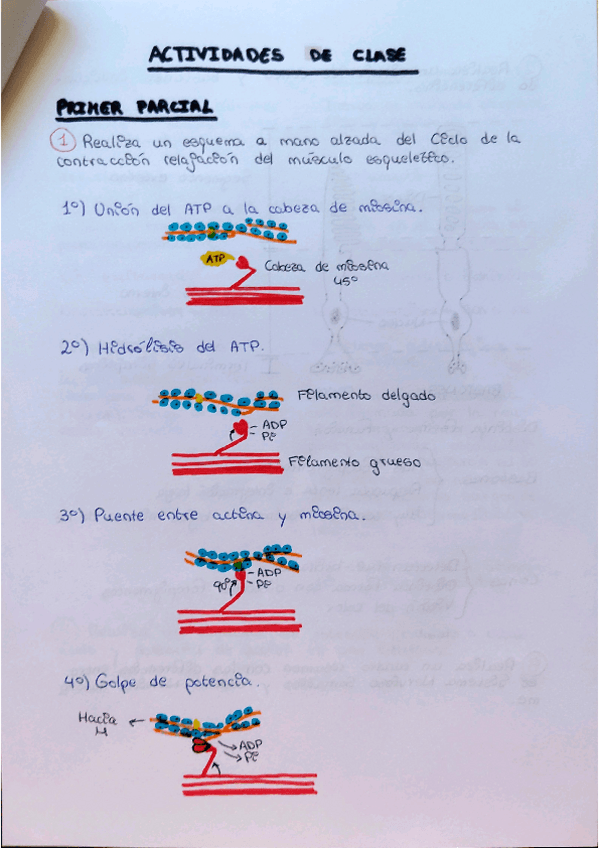 ACTIVIDADES DE CLASE
PRIMER PARCIAL
1 Realiza un esquema a mano alzada del Ciclo de la
contracción relajación del músculo esquelético.
1º) Unión del ATP a la cabeza de miosina.
ATP
Cabeza de miosina
45º
2º) Hidrólisis del ATP.
Filamento delgado
ADP
Pi
Filamento grueso
3º) Puente entre actina y miosina.
90º
ADP
Pi
4º) Golpe de potencia.
Hacia
M
ADP
Pi